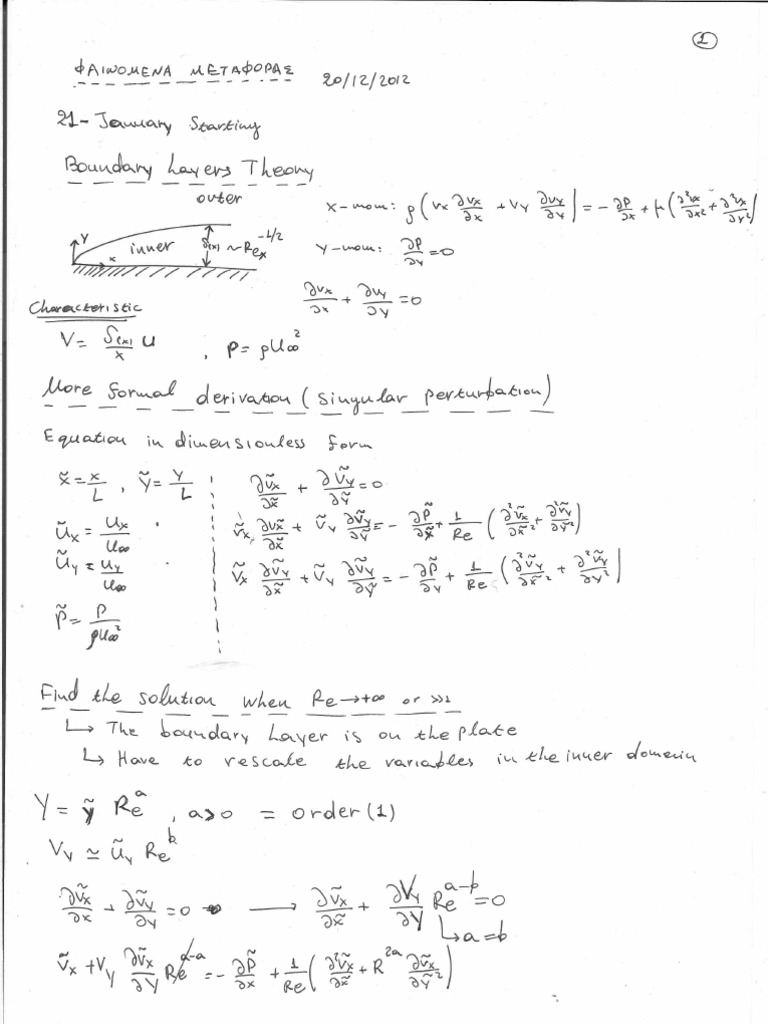 1
ΦΑΙΝΟΜΕΝΑ ΜΕΤΑΦΟΡΑΣ 20/12/2012
21- January Starting
Boundary Layers Theory
outer
x-mom: ρ(vx ∂vx/∂x + vy ∂vy/∂y) = -∂P/∂x + μ(∂²vx/∂x² + ∂²vx/∂y²)
y x inner δ(x) ~ Rex^-1/2
y-mom: ∂P/∂y = 0
∂vx/∂x + ∂vy/∂y = 0
Characteristic
V = δ(x)/x u , P = ρU∞²
More formal derivation (singular perturbation)
Equation in dimensionless form
x̃ = x/L , ỹ = y/L
∂ṽx/∂x̃ + ∂ṽy/∂ỹ = 0
ũx = ux/u∞
ṽx ∂ṽx/∂x̃ + ṽy ∂ṽy/∂ỹ = -∂P̃/∂x̃ + 1/Re (∂²ṽx/∂x̃² + ∂²ṽx/∂ỹ²)
ũy = uy/u∞
ṽx ∂ṽy/∂x̃ + ṽy ∂ṽy/∂ỹ = -∂P̃/∂y + 1/Re (∂²ṽy/∂x̃² + ∂²ṽy/∂y²)
P̃ = P/ρU∞²
Find the solution when Re→+∞ or >>1
↳ The boundary Layer is on the plate
↳ Have to rescale the variables in the inner domain
Y = ỹ Re^a , a>0 = order(1)
Vy ≃ ũy Re^b
∂ṽx/∂x + ∂ṽy/∂y = 0 → ∂ṽx/∂x̃ + ∂Vy/∂Y Re^a-b = 0
↳ a=b
ṽx + Vy ∂ṽx/∂Y Re^a-a = -∂P̃/∂x + 1/Re (∂²ṽx/∂x̃ + R^2a ∂ṽx/∂ỹ²)